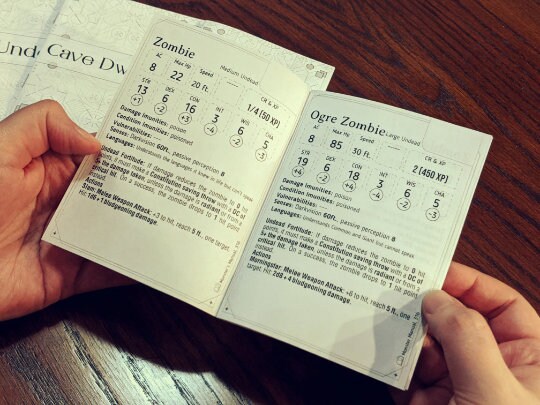 Und
Cave Dw
Zombie
Medium Undead
AC Max Hp Speed CR & XP
8 22 20 ft. 1/4 (50 XP)
STR DEX CON INT WIS CHA
13 6 16 3 6 5
+1 -2 +3 -4 -2 -3
Damage Imunities: poison
Condition imunities: poisoned
Vulnerabilities:
Senses: Darkvision 60ft., passive perception 8
Languages: understands the languages it knew in life but can't speak
Undead Fortitude: If damage reduces the zombie to 0 hit
points, it must make a Constitution saving throw with a DC of
5+ the damage taken, unless the damage is radiant or from a
critical hit. On a success, the zombie drops to 1 hit point
instead.
Actions
Slam: Melee Weapon Attack: +3 to hit, reach 5 ft., one target.
Hit: 1d6 +1 bludgeoning damage.
Ogre Zombie
Large Undead
AC Max Hp Speed CR & XP
8 85 30 ft. 2 (450 XP)
STR DEX CON INT WIS CHA
19 6 18 3 6 5
+4 -2 +4 -4 -2 -3
Damage imunities: poison
Condition imunities: poisoned
Vulnerabilities:
Senses: Darkvision 60ft., passive perception 8
Languages: Understands Common and Giant but cannot speak
Undead Fortitude: If damage reduces the zombie to 0 hit
points, it must make a Constitution saving throw with a DC of
5+ the damage taken, unless the damage is radiant or from a
critical hit. On a success, the zombie drops to 1 hit point
instead.
Actions
Morningstar: Melee Weapon Attack: +6 to hit, reach 5 ft., one
target. Hit: 2d8 +4 bludgeoning damage.